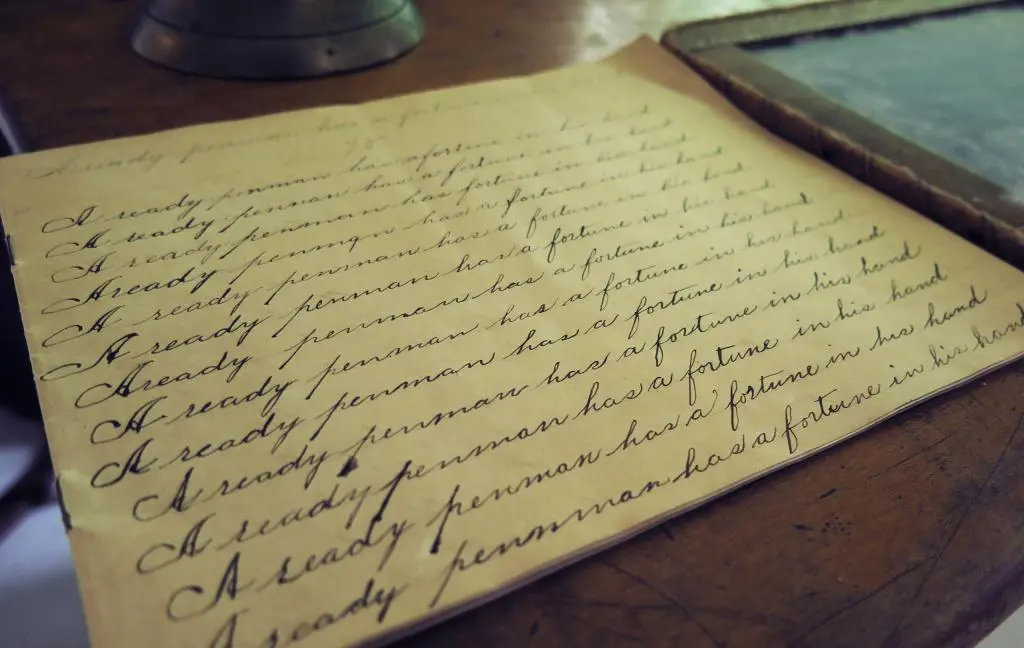 A ready penman has a fortune
A ready penman has afortune in his hand
A ready penman has a fortune in his hand
A ready penman has fortune in his hand
Aready penman has a fortune in his hand
A ready penman has a fortune in his hand
A ready penman has a fortune in his hand
Aready penman has a fortune in his hand
A ready penman has a fortune in his hand
A ready penman has a fortune in his hand
A ready penman has a fortune in his hand
A ready penman has a fortune in his hand
A ready penman has a fortune in his hand
A ready penman has a fortune in his hand